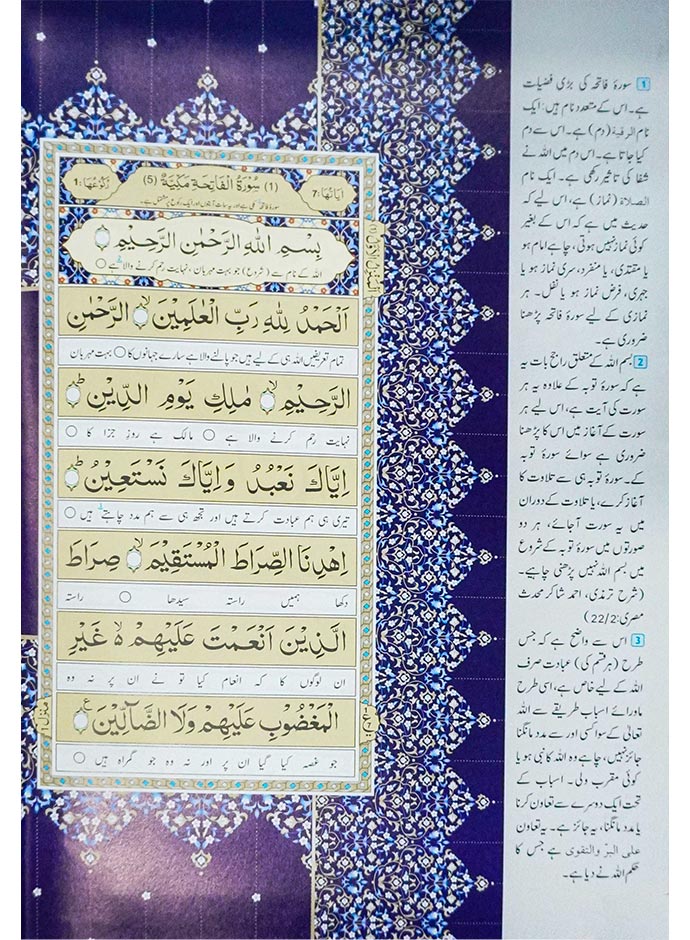 اٰیَاتُهَا:7
(1) سُوْرَةُ الْفَاتِحَةِ مَكِّيَّةٌ (5)
رُكُوْعُهَا:1
بِسْمِ اللّٰهِ الرَّحْمٰنِ الرَّحِيْمِ
اللہ کے نام سے (شروع) جو بہت مہربان، نہایت رحم کرنے والا ہے
اَلْحَمْدُ لِلّٰهِ رَبِّ الْعٰلَمِيْنَ ۙ الرَّحْمٰنِ
تمام تعریفیں اللہ ہی کے لیے ہیں جو پالنے والا ہے سارے جہانوں کا ○ بہت مہربان
الرَّحِيْمِ ۙ مٰلِكِ يَوْمِ الدِّيْنِ ؕ
نہایت رحم کرنے والا ہے ○ مالک ہے روزِ جزا کا ○
اِيَّاكَ نَعْبُدُ وَاِيَّاكَ نَسْتَعِيْنُ ؕ
تیری ہی ہم عبادت کرتے ہیں اور تجھ ہی سے ہم مدد چاہتے ہیں ○
اِهْدِنَا الصِّرَاطَ الْمُسْتَقِيْمَ ۙ صِرَاطَ
دکھا ہمیں راستہ سیدھا ○ راستہ
الَّذِيْنَ اَنْعَمْتَ عَلَيْهِمْ ۙ غَيْرِ
ان لوگوں کا کہ انعام کیا تو نے ان پر نہ وہ
الْمَغْضُوْبِ عَلَيْهِمْ وَلَا الضَّآلِّيْنَ
جو غصہ کیا گیا ان پر اور نہ وہ جو گمراہ ہیں ○
منزل ۱
1 سورۂ فاتحہ کی بڑی فضیلت
ہے۔ اس کے متعدد نام ہیں: ایک
نام الرقية (دم) ہے۔ اس سے دم
کیا جاتا ہے۔ اس دم میں اللہ نے
شفا کی تاثیر رکھی ہے۔ ایک نام
الصلاة (نماز) ہے، اس لیے کہ
حدیث میں ہے کہ اس کے بغیر
کوئی نماز نہیں ہوتی، چاہے امام ہو
یا مقتدی، یا منفرد، سری نماز ہو یا
جہری، فرض نماز ہو یا نفل۔ ہر
نمازی کے لیے سورۂ فاتحہ پڑھنا
ضروری ہے۔
2 بسم اللہ کے متعلق راجح بات یہ
ہے کہ سورۂ توبہ کے علاوہ یہ ہر
سورت کی آیت ہے، اس لیے ہر
سورت کے آغاز میں اس کا پڑھنا
ضروری ہے سوائے سورۂ توبہ
کے۔ سورۂ توبہ ہی سے تلاوت کا
آغاز کرے، یا تلاوت کے دوران
میں یہ سورت آجائے، ہر دو
صورتوں میں سورۂ توبہ کے شروع
میں بسم اللہ نہیں پڑھنی چاہیے۔
(شرح ترمذی، احمد شاکر محدث
مصری:22/2)
3 اس سے واضح ہے کہ جس
طرح (ہر قسم کی) عبادت صرف
اللہ کے لیے خاص ہے، اسی طرح
ماورائے اسباب طریقے سے اللہ
تعالیٰ کے سوا کسی اور سے مدد مانگنا
جائز نہیں، چاہے وہ اللہ کا نبی ہو یا
کوئی مقرب ولی۔ اسباب کے
تحت ایک دوسرے سے تعاون کرنا
یا مدد مانگنا، یہ جائز ہے۔ یہ تعاون
على البرّ والتقوى ہے جس کا
حکم اللہ نے دیا ہے۔